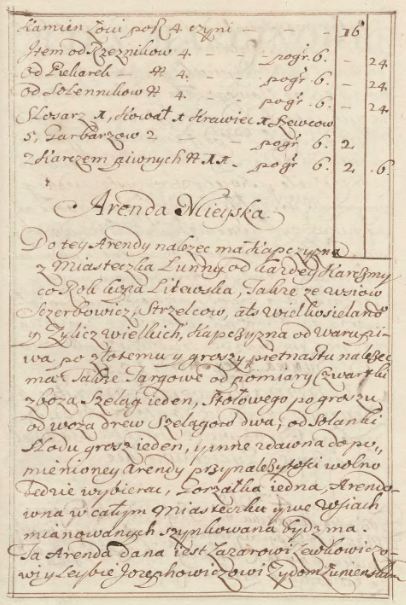 Kamien Łoiu po R 4 czyni – – – 16
Item od Rzeznikow 4. – pogr. 6. – 24
od Piekarek – # 4. – pogr. 6. – 24
od Solennikow # 4. – pogr. 6. – 24
Slosarz 1, Kowal 1 Krawiec 1 Szewcow
5, Garbarzow 2 – pogr 6. 2.
z Karczem piwnych # 11 – pogr. 6. 2. 6.
Arenda Mieyska
Do tey Arendy nalezec ma Kapczyzna
z Miasteczka Lunny od kazdey Karczmy
co Rok kopa Litewska, Takze ze wsiow
Szczerbowicz, Strzelcow, als Wielkosielcow
y Zylicz wielkich, Kapczyzna od waru pi-
wa po złotemu y groszy pietnastu nalezec
ma Takze Targowe od pomiary czwartki
zboza Szeląg ieden, Stołowego po groszu
od woza drew Szelągow dwa, od Solanki
Słodu grosz ieden, y inne zdawna do po-
mienioney Arendy przynalezytosci wolno
bedzie wybierac, Gorzałka iedna, Arendo-
wna w całym Miasteczku y we wsiach
mianowanych szynkowana bydz ma.
Ta Arenda dana iest Łazarowi Lewkowiczo-
wi y Leybie Jozephowiczowi Zydom Łunienskim